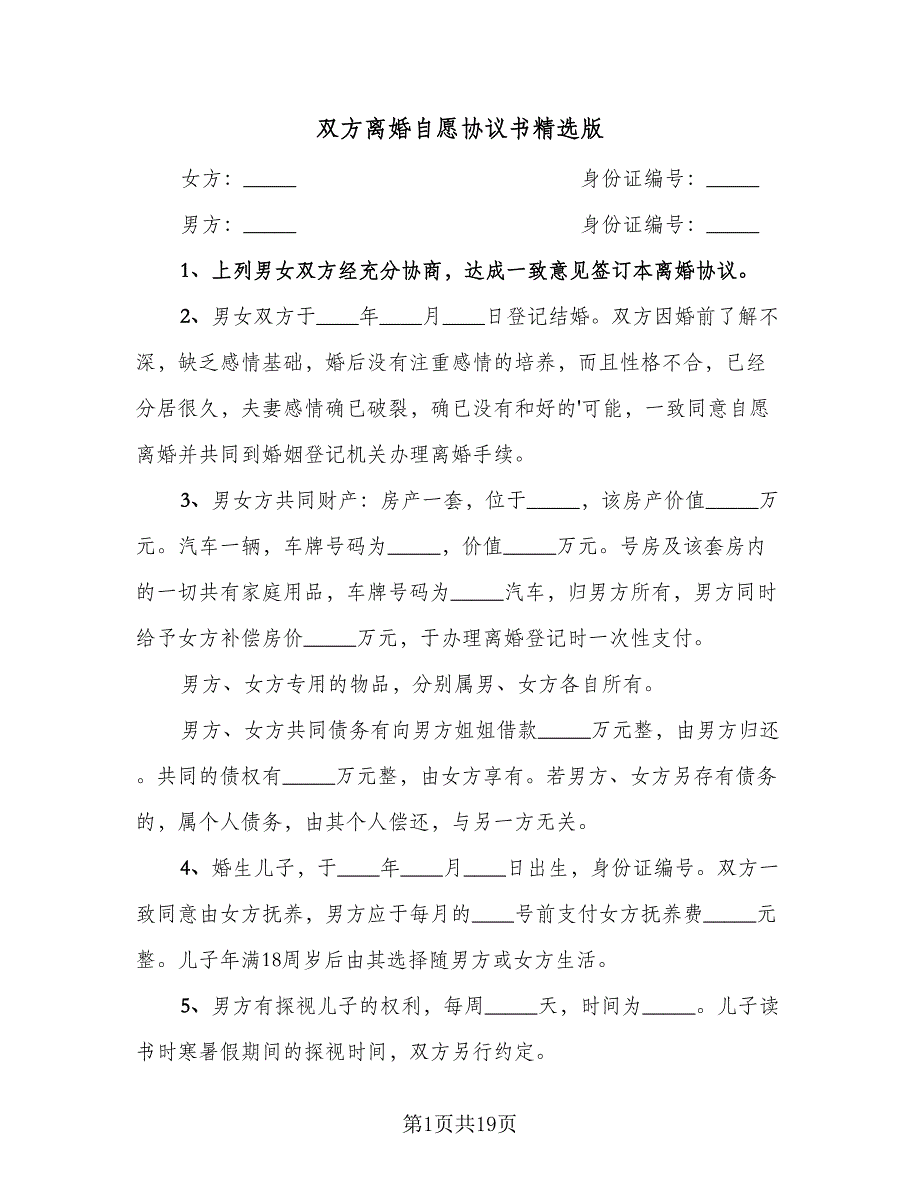 双方离婚自愿协议书精选版
女方：_____ 身份证编号：_____
男方：_____ 身份证编号：_____
1、上列男女双方经充分协商，达成一致意见签订本离婚协议。
2、男女双方于____年____月____日登记结婚。双方因婚前了解不
深，缺乏感情基础，婚后没有注重感情的培养，而且性格不合，已经
分居很久，夫妻感情确已破裂，确已没有和好的'可能，一致同意自愿
离婚并共同到婚姻登记机关办理离婚手续。
3、男女方共同财产：房产一套，位于_____，该房产价值_____万
元。汽车一辆，车牌号码为_____，价值_____万元。号房及该套房内
的一切共有家庭用品，车牌号码为_____汽车，归男方所有，男方同时
给予女方补偿房价_____万元，于办理离婚登记时一次性支付。
男方、女方专用的物品，分别属男、女方各自所有。
男方、女方共同债务有向男方姐姐借款_____万元整，由男方归还
。共同的债权有_____万元整，由女方享有。若男方、女方另存有债务
的，属个人债务，由其个人偿还，与另一方无关。
4、婚生儿子，于____年____月____日出生，身份证编号。双方一
致同意由女方抚养，男方应于每月的____号前支付女方抚养费_____元
整。儿子年满18周岁后由其选择随男方或女方生活。
5、男方有探视儿子的权利，每周_____天，时间为_____。儿子读
书时寒暑假期间的探视时间，双方另行约定。
第1页共19页